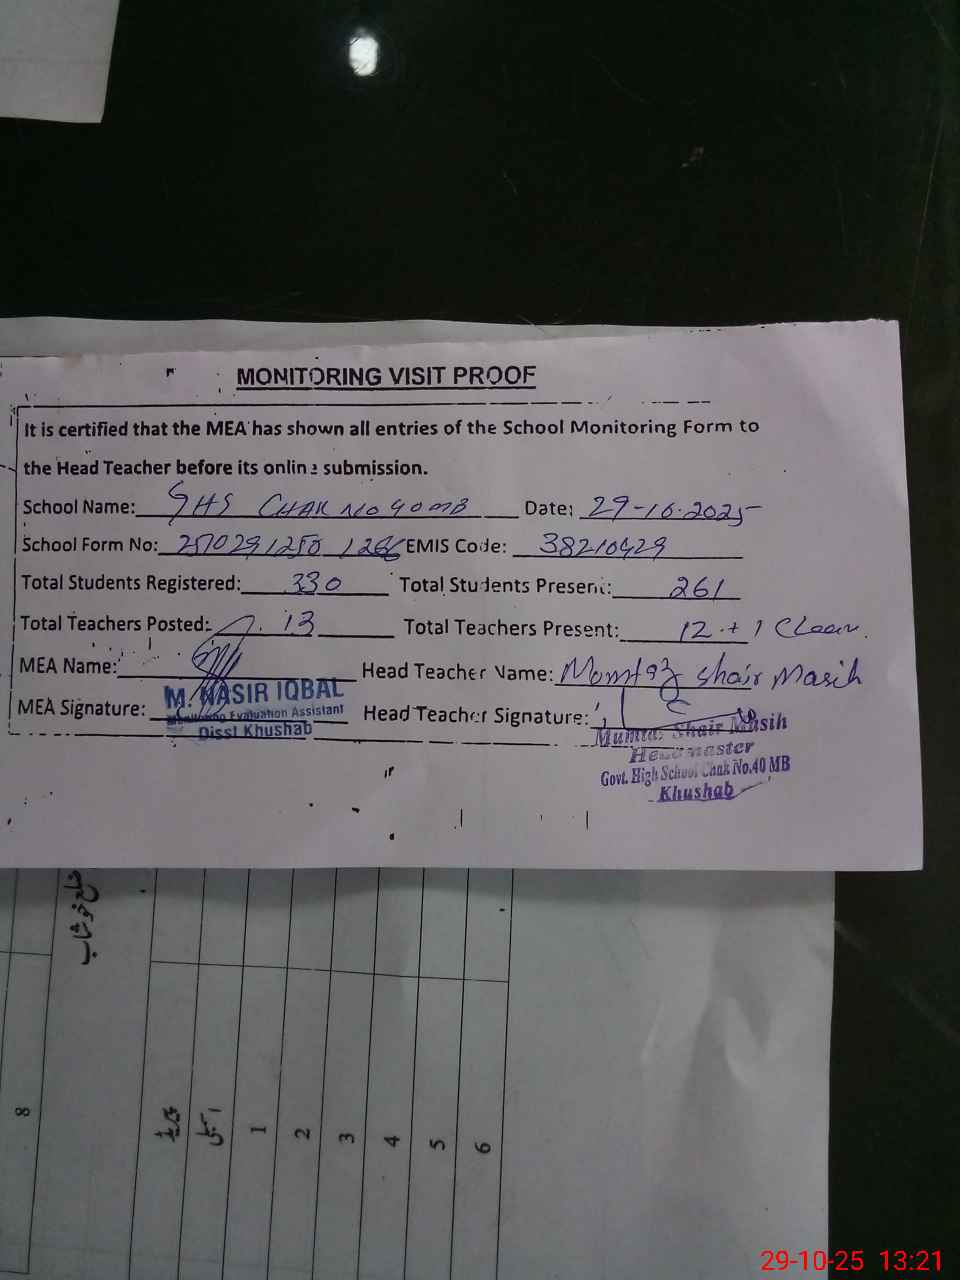 MONITORING VISIT PROOF
It is certified that the MEA has shown all entries of the School Monitoring Form to
the Head Teacher before its online submission.
School Name: GHS CHAK NO 40 MB Date: 29-10-2025
School Form No: EMIS Code: 38210429
Total Students Registered: 330 Total Students Present: 261
Total Teachers Posted: 13 Total Teachers Present: 12 + 1 C Leave.
MEA Name: Head Teacher Name: Momtaz Shair Masih
M. NASIR IQBAL
MEA Signature: Head Teacher Signature:
Monitoring Evaluation Assistant
Disst Khushab
Mumtaz Shair Masih
Headmaster
Govt. High School Chak No.40 MB
Khushab
ضلع خوشاب
8
1
2
3
4
5
6
29-10-25 13:21